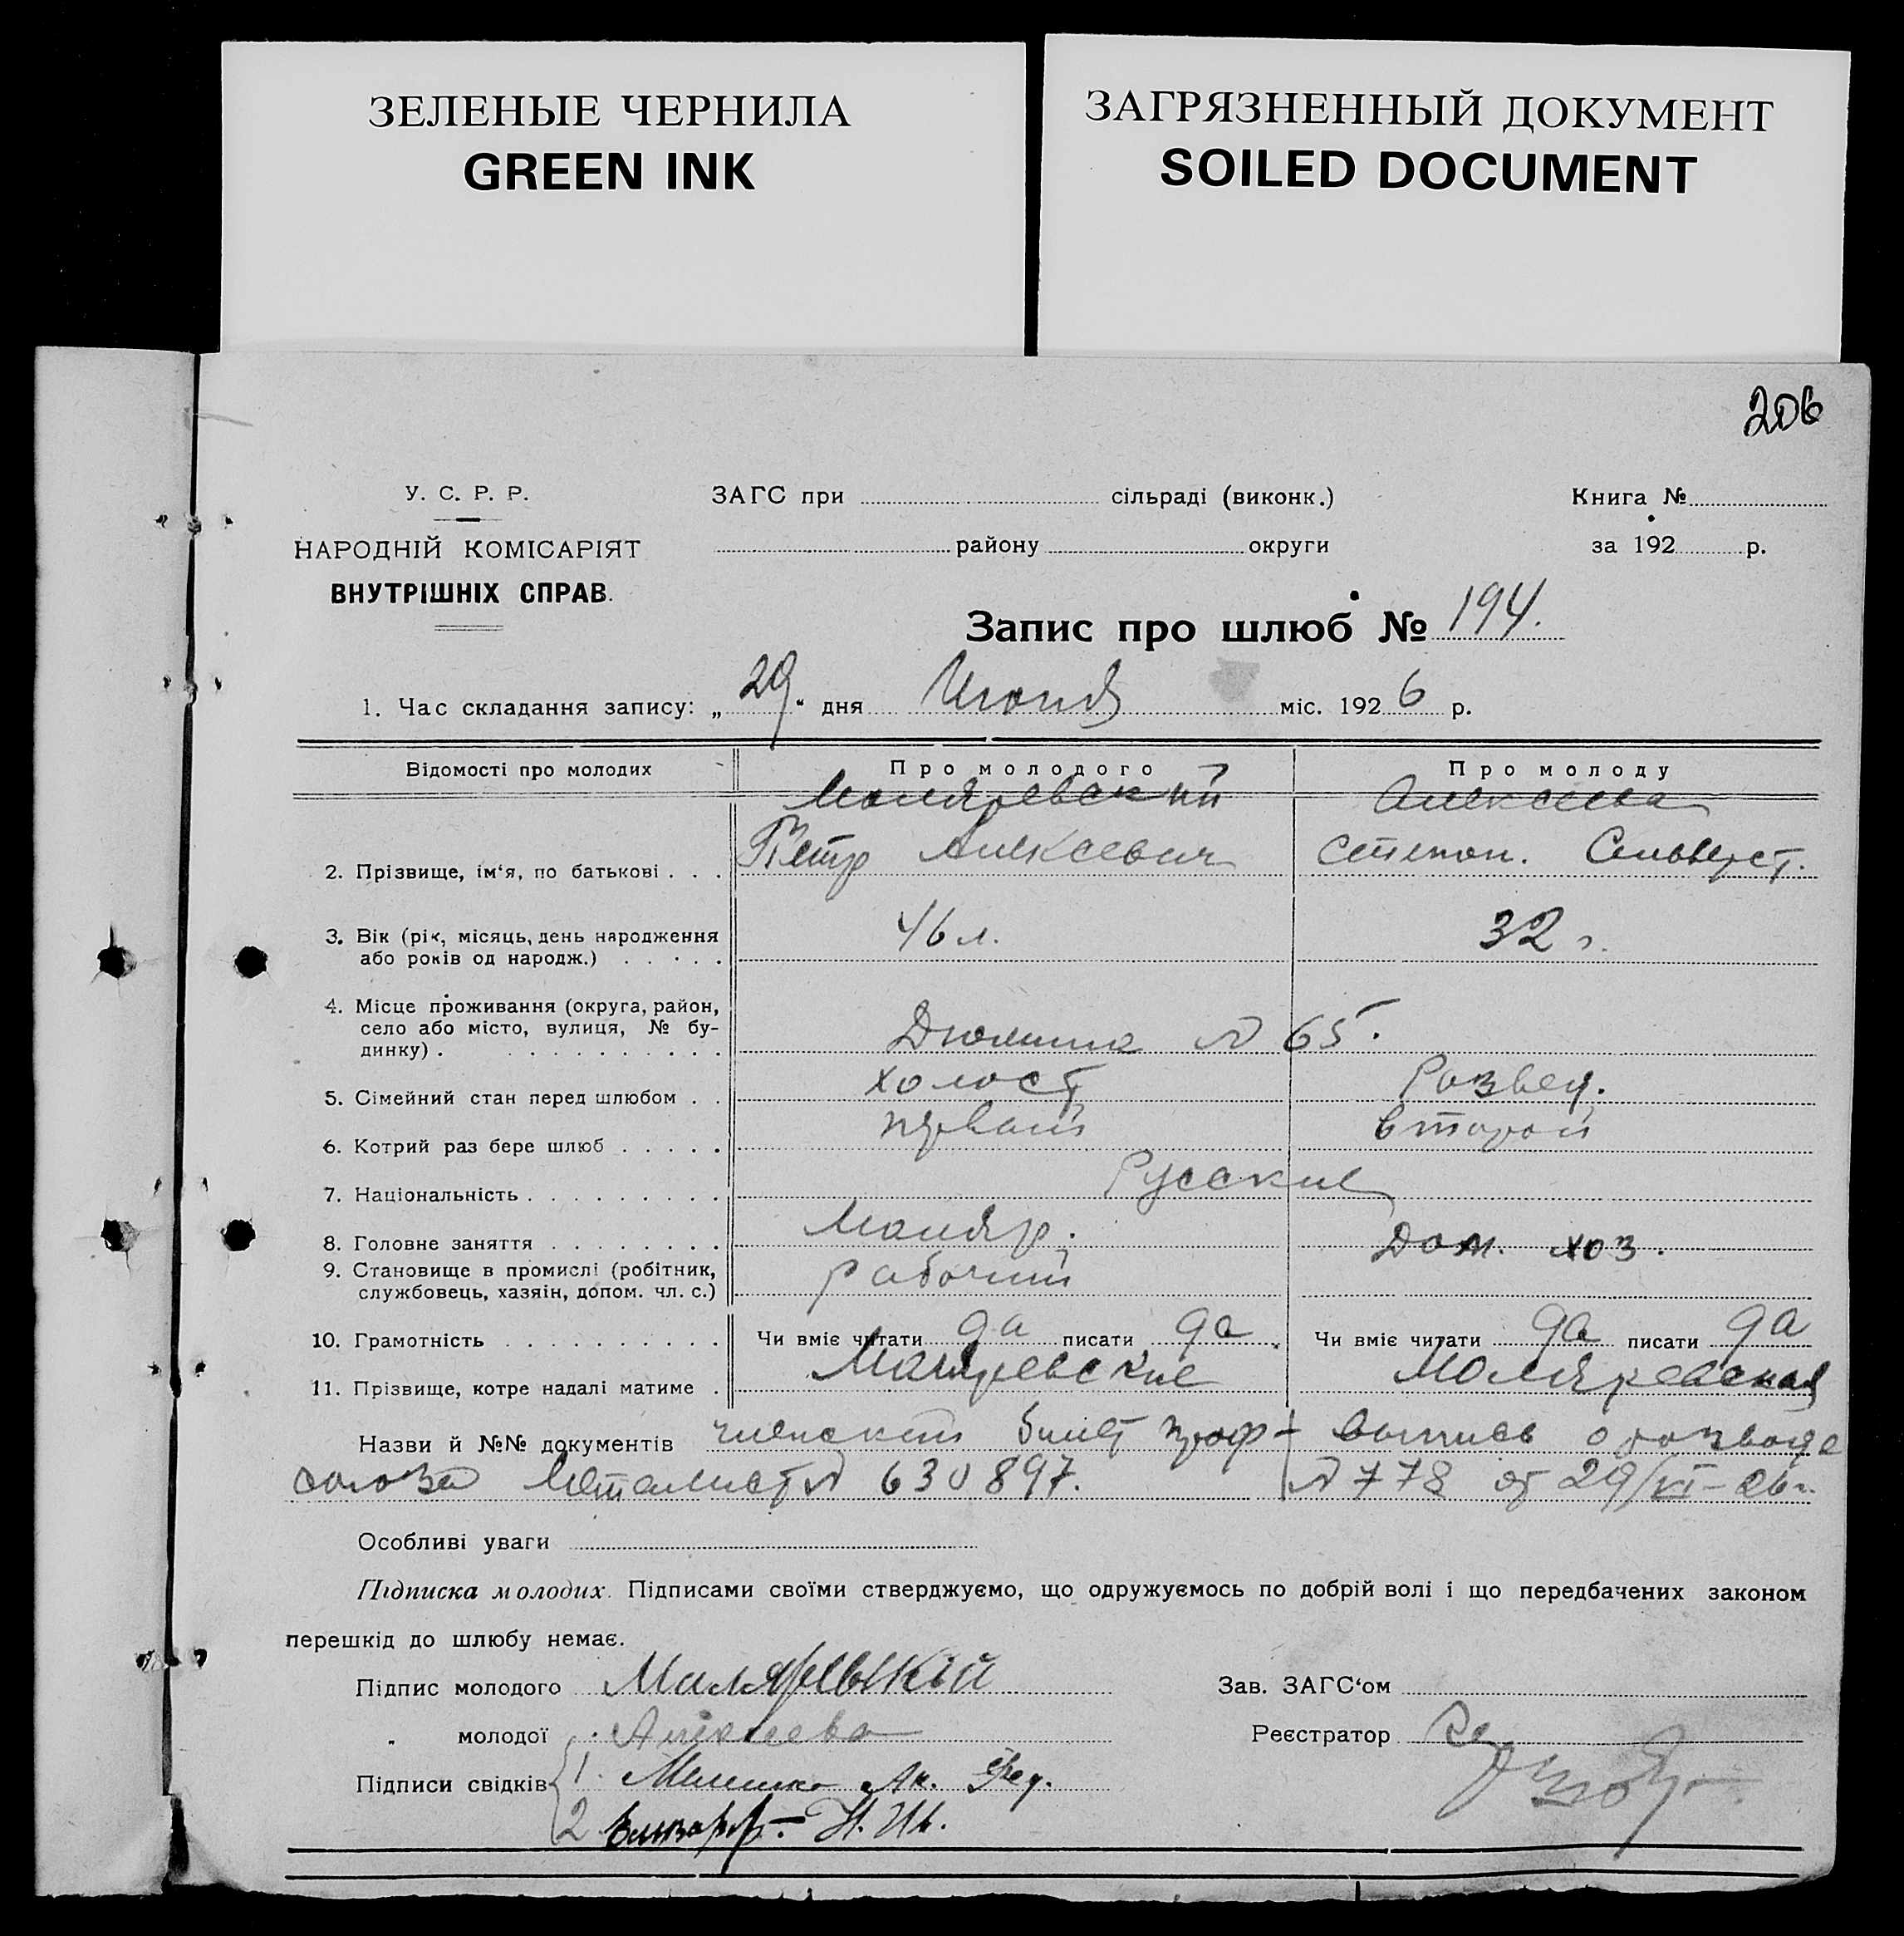 ЗЕЛЕНЫЕ ЧЕРНИЛА
GREEN INK
ЗАГРЯЗНЕННЫЙ ДОКУМЕНТ
SOILED DOCUMENT
206
У. С. Р. Р.
НАРОДНІЙ КОМІСАРІЯТ
ВНУТРІШНІХ СПРАВ.
ЗАГС при сільраді (виконк.)
району округи
Книга №
за 192 р.
Запис про шлюб № 194.
1. Час складання запису: „29“ дня Июня міс. 1926 р.
Відомості про молодих Про молодого Про молоду
Маляревский Алексеева
2. Прізвище, ім‘я, по батькові . . . Петр Алексеевич Степан. Сильверст.
3. Вік (рік, місяць, день народження
або років од народж.) . . . . . 46 л. 32 г.
4. Місце проживання (округа, район,
село або місто, вулиця, № бу-
динку) . . . . . . . . . . . № 65.
5. Сімейний стан перед шлюбом . . холост Развед.
6. Котрий раз бере шлюб . . . . . первый второй
7. Національність . . . . . . . . . Русские
8. Головне заняття . . . . . . . . Маляр. Дом. хоз.
9. Становище в промислі (робітник,
службовець, хазяін, допом. чл. с.) рабочий
10. Грамотність . . . . . . . . . . Чи вміє читати да писати да Чи вміє читати да писати да
11. Прізвище, котре надалі матиме . Маляревские Маляревская
Назви й №№ документів членский билет проф- выпись о разводе
союза Металист № 630897. № 778 от 29/VI-26 г.
Особливі уваги
Підписка молодих. Підписами своїми стверджуємо, що одружуємось по добрій волі і що передбачених законом
перешкід до шлюбу немає.
Підпис молодого Маляревскій
Зав. ЗАГС‘ом
„ молодої Алексеева
Реєстратор
Підписи свідків 1. Ак. Фед.
2 Н. Ив.